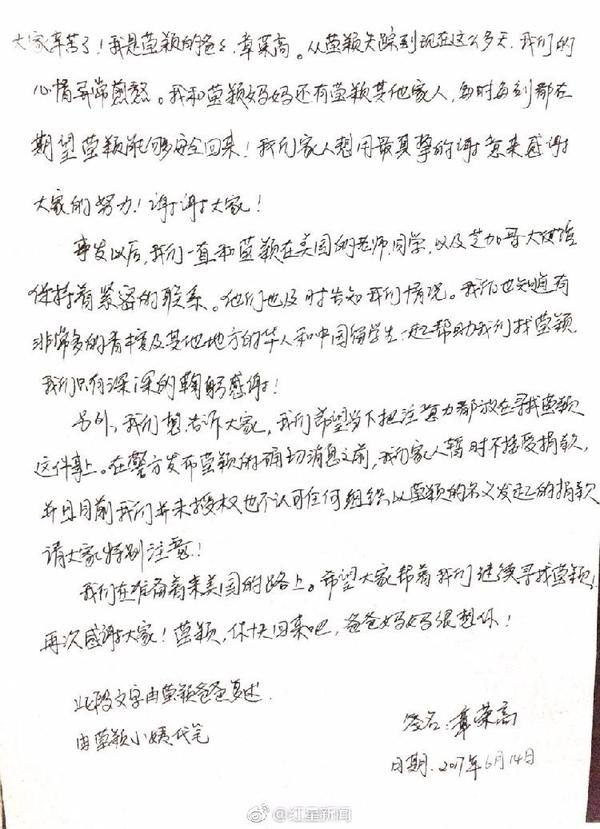 大家辛苦了！我是莹颖的爸爸章荣高。从莹颖失踪到现在这么多天，我们的
心情异常煎熬。我和莹颖妈妈还有莹颖其他家人，每时每刻都在
期望莹颖能够安全回来！我们家人想用最真挚的谢意来感谢
大家的努力！谢谢大家！
事发以后，我们一直和莹颖在美国的老师，同学，以及芝加哥大使馆
保持着紧密的联系。他们也及时告知我们情况。我们也知道有
非常多的香槟及其他地方的华人和中国留学生一起帮助我们找莹颖
我们只有深深的鞠躬感谢！
另外，我们想告诉大家，我们希望当下把注意力都放在寻找莹颖
这件事上。在警方发布莹颖的确切消息之前，我们家人暂时不接受捐款，
并且目前我们并未授权也不认可任何组织以莹颖的名义发起的捐款
请大家特别注意！
我们在准备着来美国的路上。希望大家帮着我们继续寻找莹颖，
再次感谢大家！莹颖，你快回来吧，爸爸妈妈很想你！
此段文字由莹颖爸爸复述
由莹颖小姨代笔
签名：章荣高
日期：2017年6月14日
@红星新闻